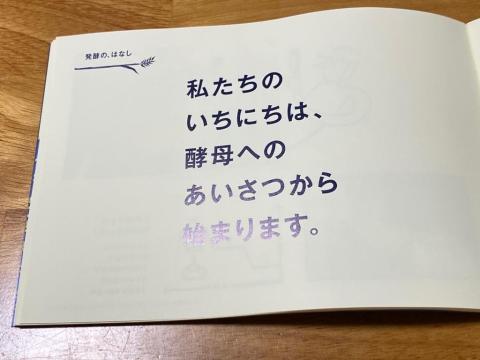 発酵の、はなし
私たちの
いちにちは、
酵母への
あいさつから
始まります。